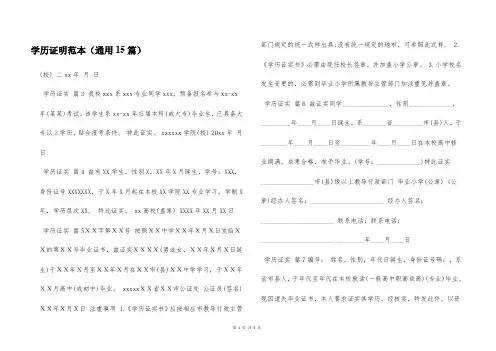 学历证明范本（通用15篇）
(校) 二xx年 月 日
学历证实 篇3 我校xxx系xxx专业同学xxx，预备报名参与xx-xx
年(某某)考试。该学生系xx-xx年应届本科(或大专)毕业生，已具备大
专以上学历，贴合报考条件。 特此证实。 xxxxxx学院(校) 20xx年 月
日
学历证实 篇4 兹有XX学生，性别X，XX年X月诞生，学号：XXX，
身份证号XXXXXXX，于X年X月起在本校XX学院XX专业学习，学制X
年，学历层次XX。 特此证实。 xx高校(盖章) XXXX年XX月XX日
学历证实 篇5ＸＸ字第ＸＸ号 按照ＸＸ中学ＸＸ年Ｘ月Ｘ日发给Ｘ
Ｘ的第ＸＸ号毕业证书，兹证实ＸＸＸＸ(男或女，ＸＸ年Ｘ月Ｘ日诞
生)于ＸＸ年Ｘ月至ＸＸ年Ｘ月在ＸＸ市(县)ＸＸ中学学习，于ＸＸ年
ＸＸ月高中(或初中)毕业。 xxxxxＸＸ省ＸＸ市公证处 公证员(签名)
ＸＸ年Ｘ月Ｘ日 注重事项 1.《学历证实书》应按相应市教导行政主管
部门规定的统一式样出具;没有统一规定的地市，可参照此式样。 2.
《学历证实书》必需由现任校长签章，并加盖小学公章。 3.小学校名
发生变更的，必需到毕业小学所属教导主管部门加注重见并盖章。
学历证实 篇6 兹证实同学______________，性别_____________，
_________年____月____日诞生，系_______省________市(县)人，于
________年____月____日至________年____月____日在本校高中修
业期满，成果合格，准予毕业。(学号：_____________)特此证实
________________市(县)级以上教导行政部门 毕业小学(公章) (公
章)经办人签名：______________________ 经办人签名：
______________________ 联系电话：联系电话：
______________________ ________年____月____日
学历证实 篇7编号： 姓名，性别，年代日诞生，身份证号码：，系
省市县人，于年代至年代在本校就读(一般高中职高成高)(专业)毕业，
现因遗失毕业证书，本人要求证实其学历，经核实，特发此件，以资
第 1 页 共 3 页